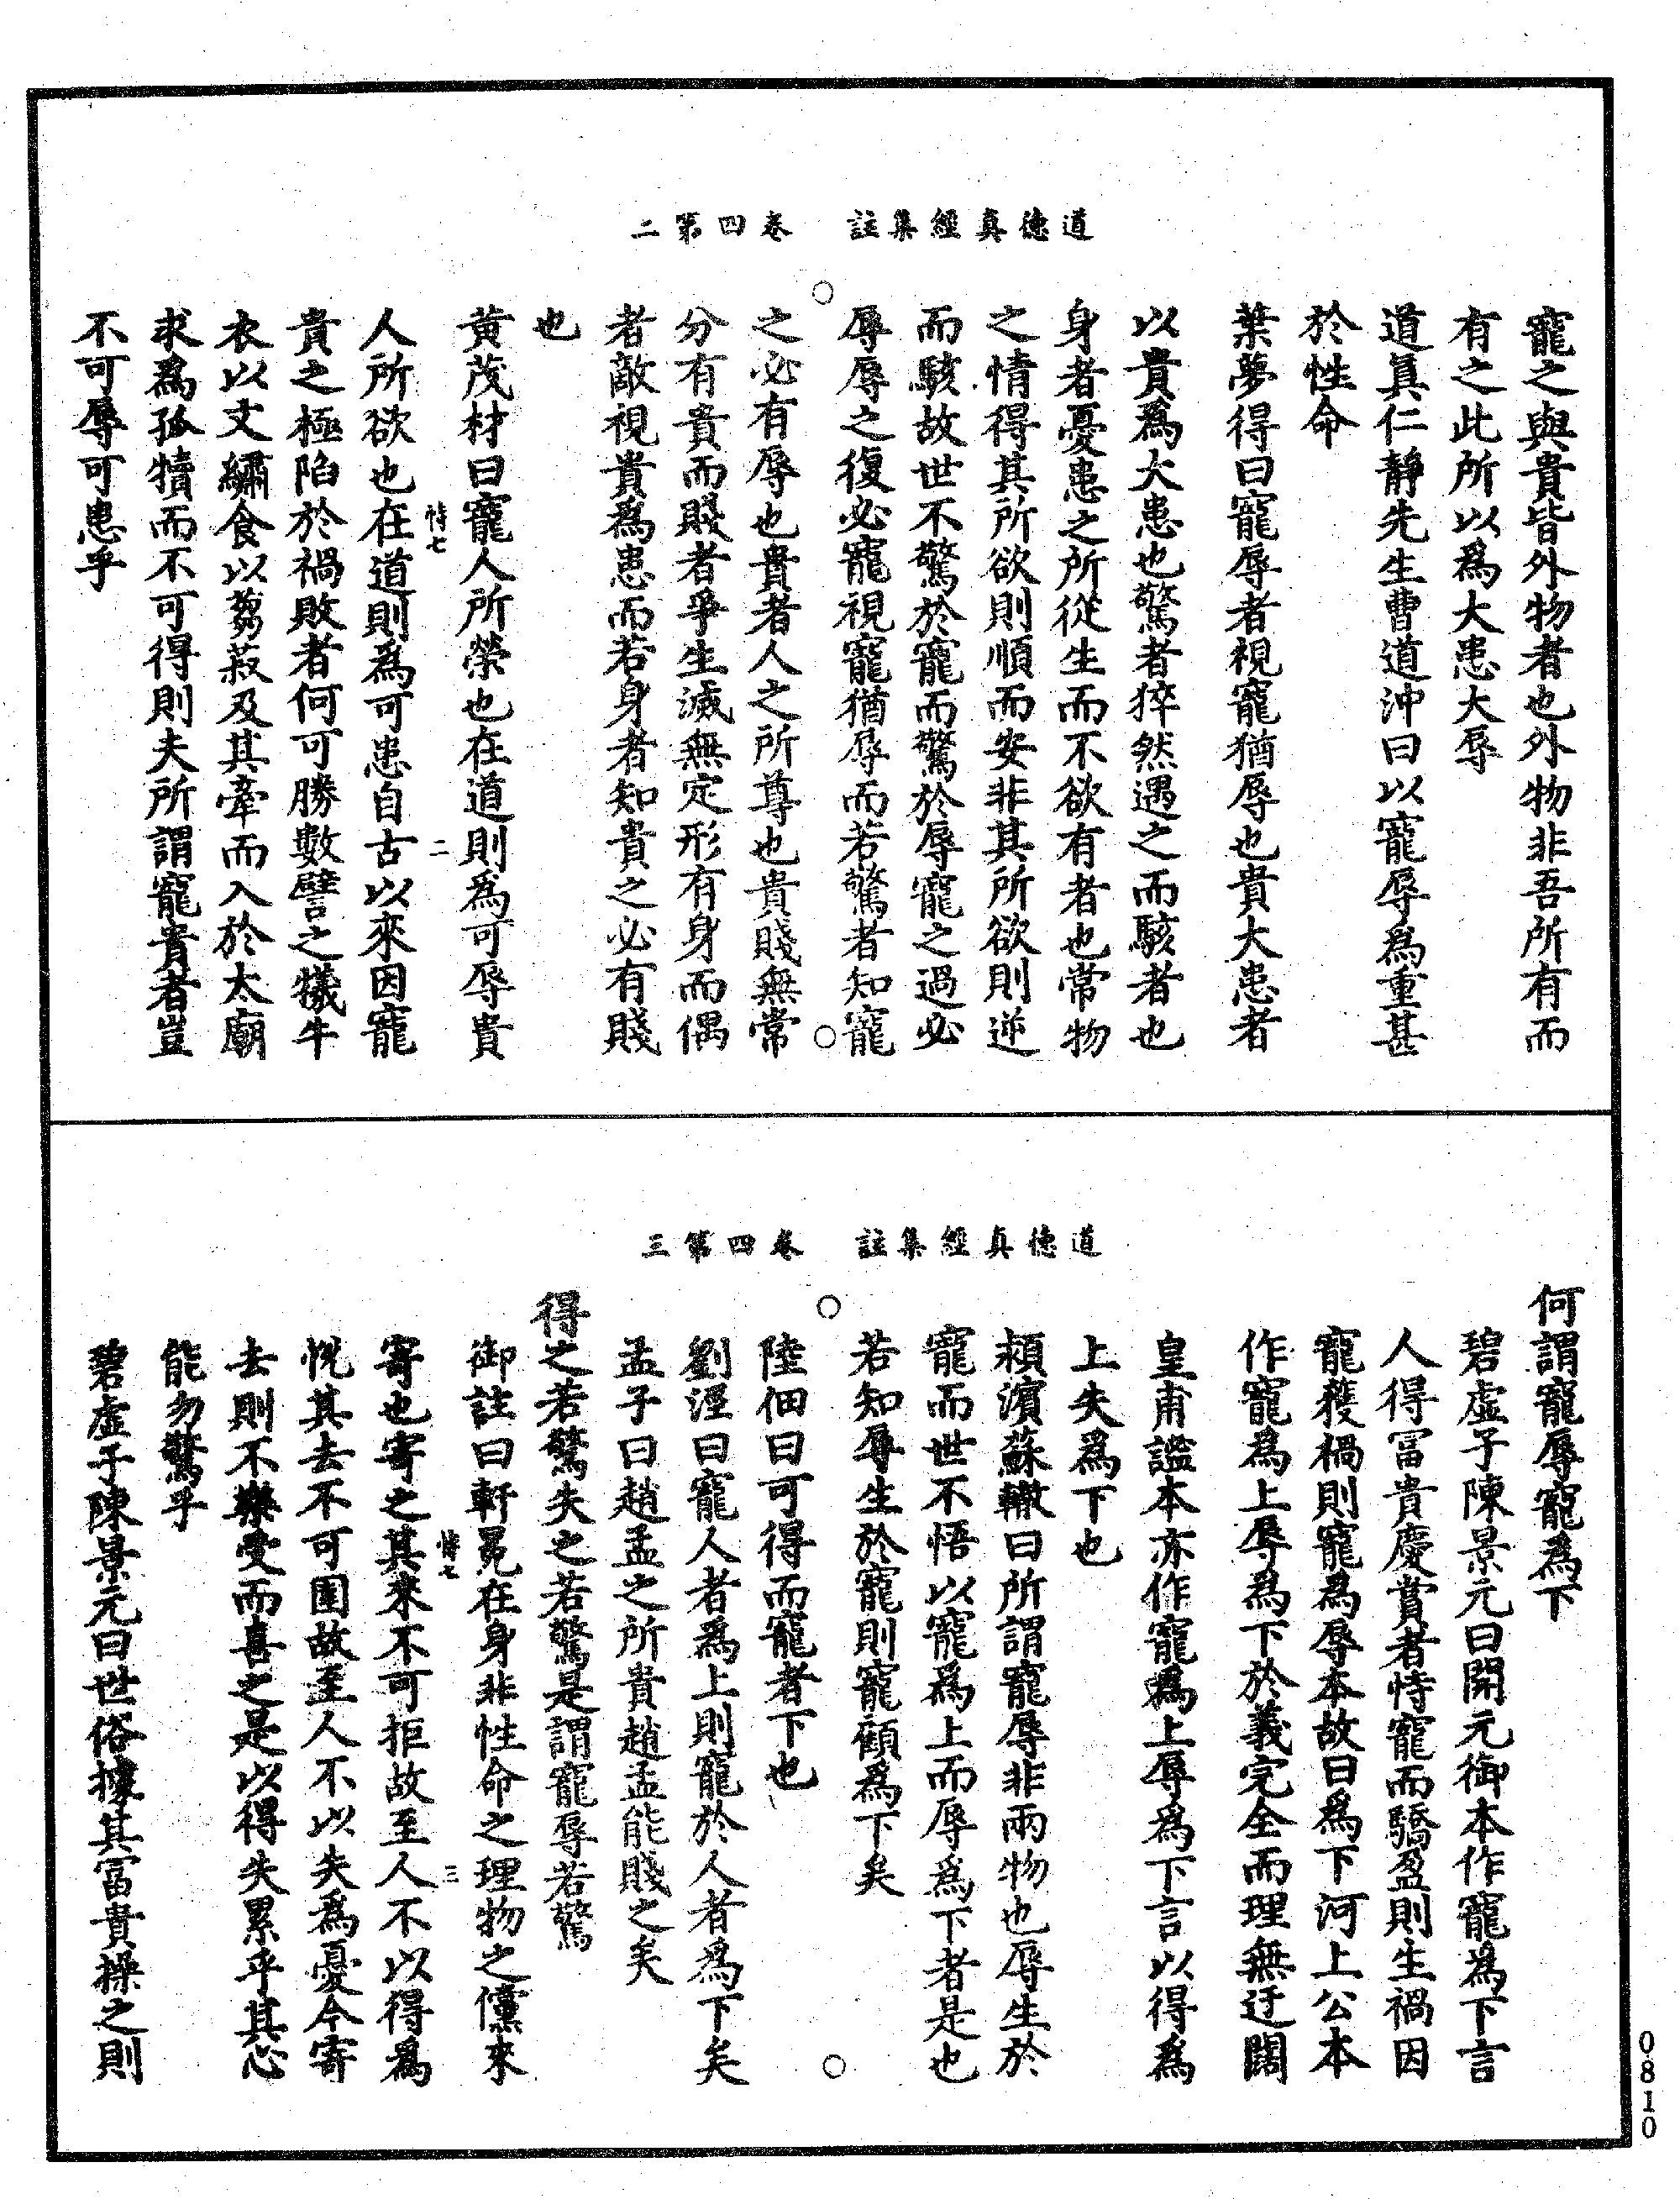 道德真經集註　卷四第二
寵之與貴皆外物者也外物非吾所有而
有之此所以爲大患大辱
道眞仁靜先生曹道沖曰以寵辱爲重甚
於性命
葉夢得曰寵辱者視寵猶辱也貴大患者
以貴爲大患也驚者猝然遇之而駭者也
身者憂患之所從生而不欲有者也常物
之情得其所欲則順而安非其所欲則逆
而駭故世不驚於寵而驚於辱寵之過必
辱辱之復必寵視寵猶辱而若驚者知寵
之必有辱也貴者人之所尊也貴賤無常
分有貴而賤者爭生滅無定形有身而偶
者敵視貴爲患而若身者知貴之必有賤
也
黃茂材曰寵人所榮也在道則爲可辱貴
恃七
二
人所欲也在道則爲可患自古以來因寵
貴之極陷於禍敗者何可勝數譬之犧牛
衣以文繡食以芻菽及其牽而入於太廟
求爲孤犢而不可得則夫所謂寵貴者豈
不可辱可患乎
道德真經集註　卷四第三
何謂寵辱寵爲下
碧虛子陳景元曰開元御本作寵爲下言
人得富貴慶賞者恃寵而驕盈則生禍因
寵獲禍則寵爲辱本故曰爲下河上公本
作寵爲上辱爲下於義完全而理無迂闊
皇甫謐本亦作寵爲上辱爲下言以得爲
上失爲下也
潁濱蘇轍曰所謂寵辱非兩物也辱生於
寵而世不悟以寵爲上而辱爲下者是也
若知辱生於寵則寵顧爲下矣
陸佃曰可得而寵者下也
劉涇曰寵人者爲上則寵於人者爲下矣
孟子曰趙孟之所貴趙孟能賤之矣
得之若驚失之若驚是謂寵辱若驚
御註曰軒冕在身非性命之理物之儻來
恃七
三
寄也寄之其來不可拒故至人不以得爲
悅其去不可圉故至人不以失爲憂今寄
去則不樂受而喜之是以得失累乎其心
能勿驚乎
碧虛子陳景元曰世俗據其富貴操之則
0810